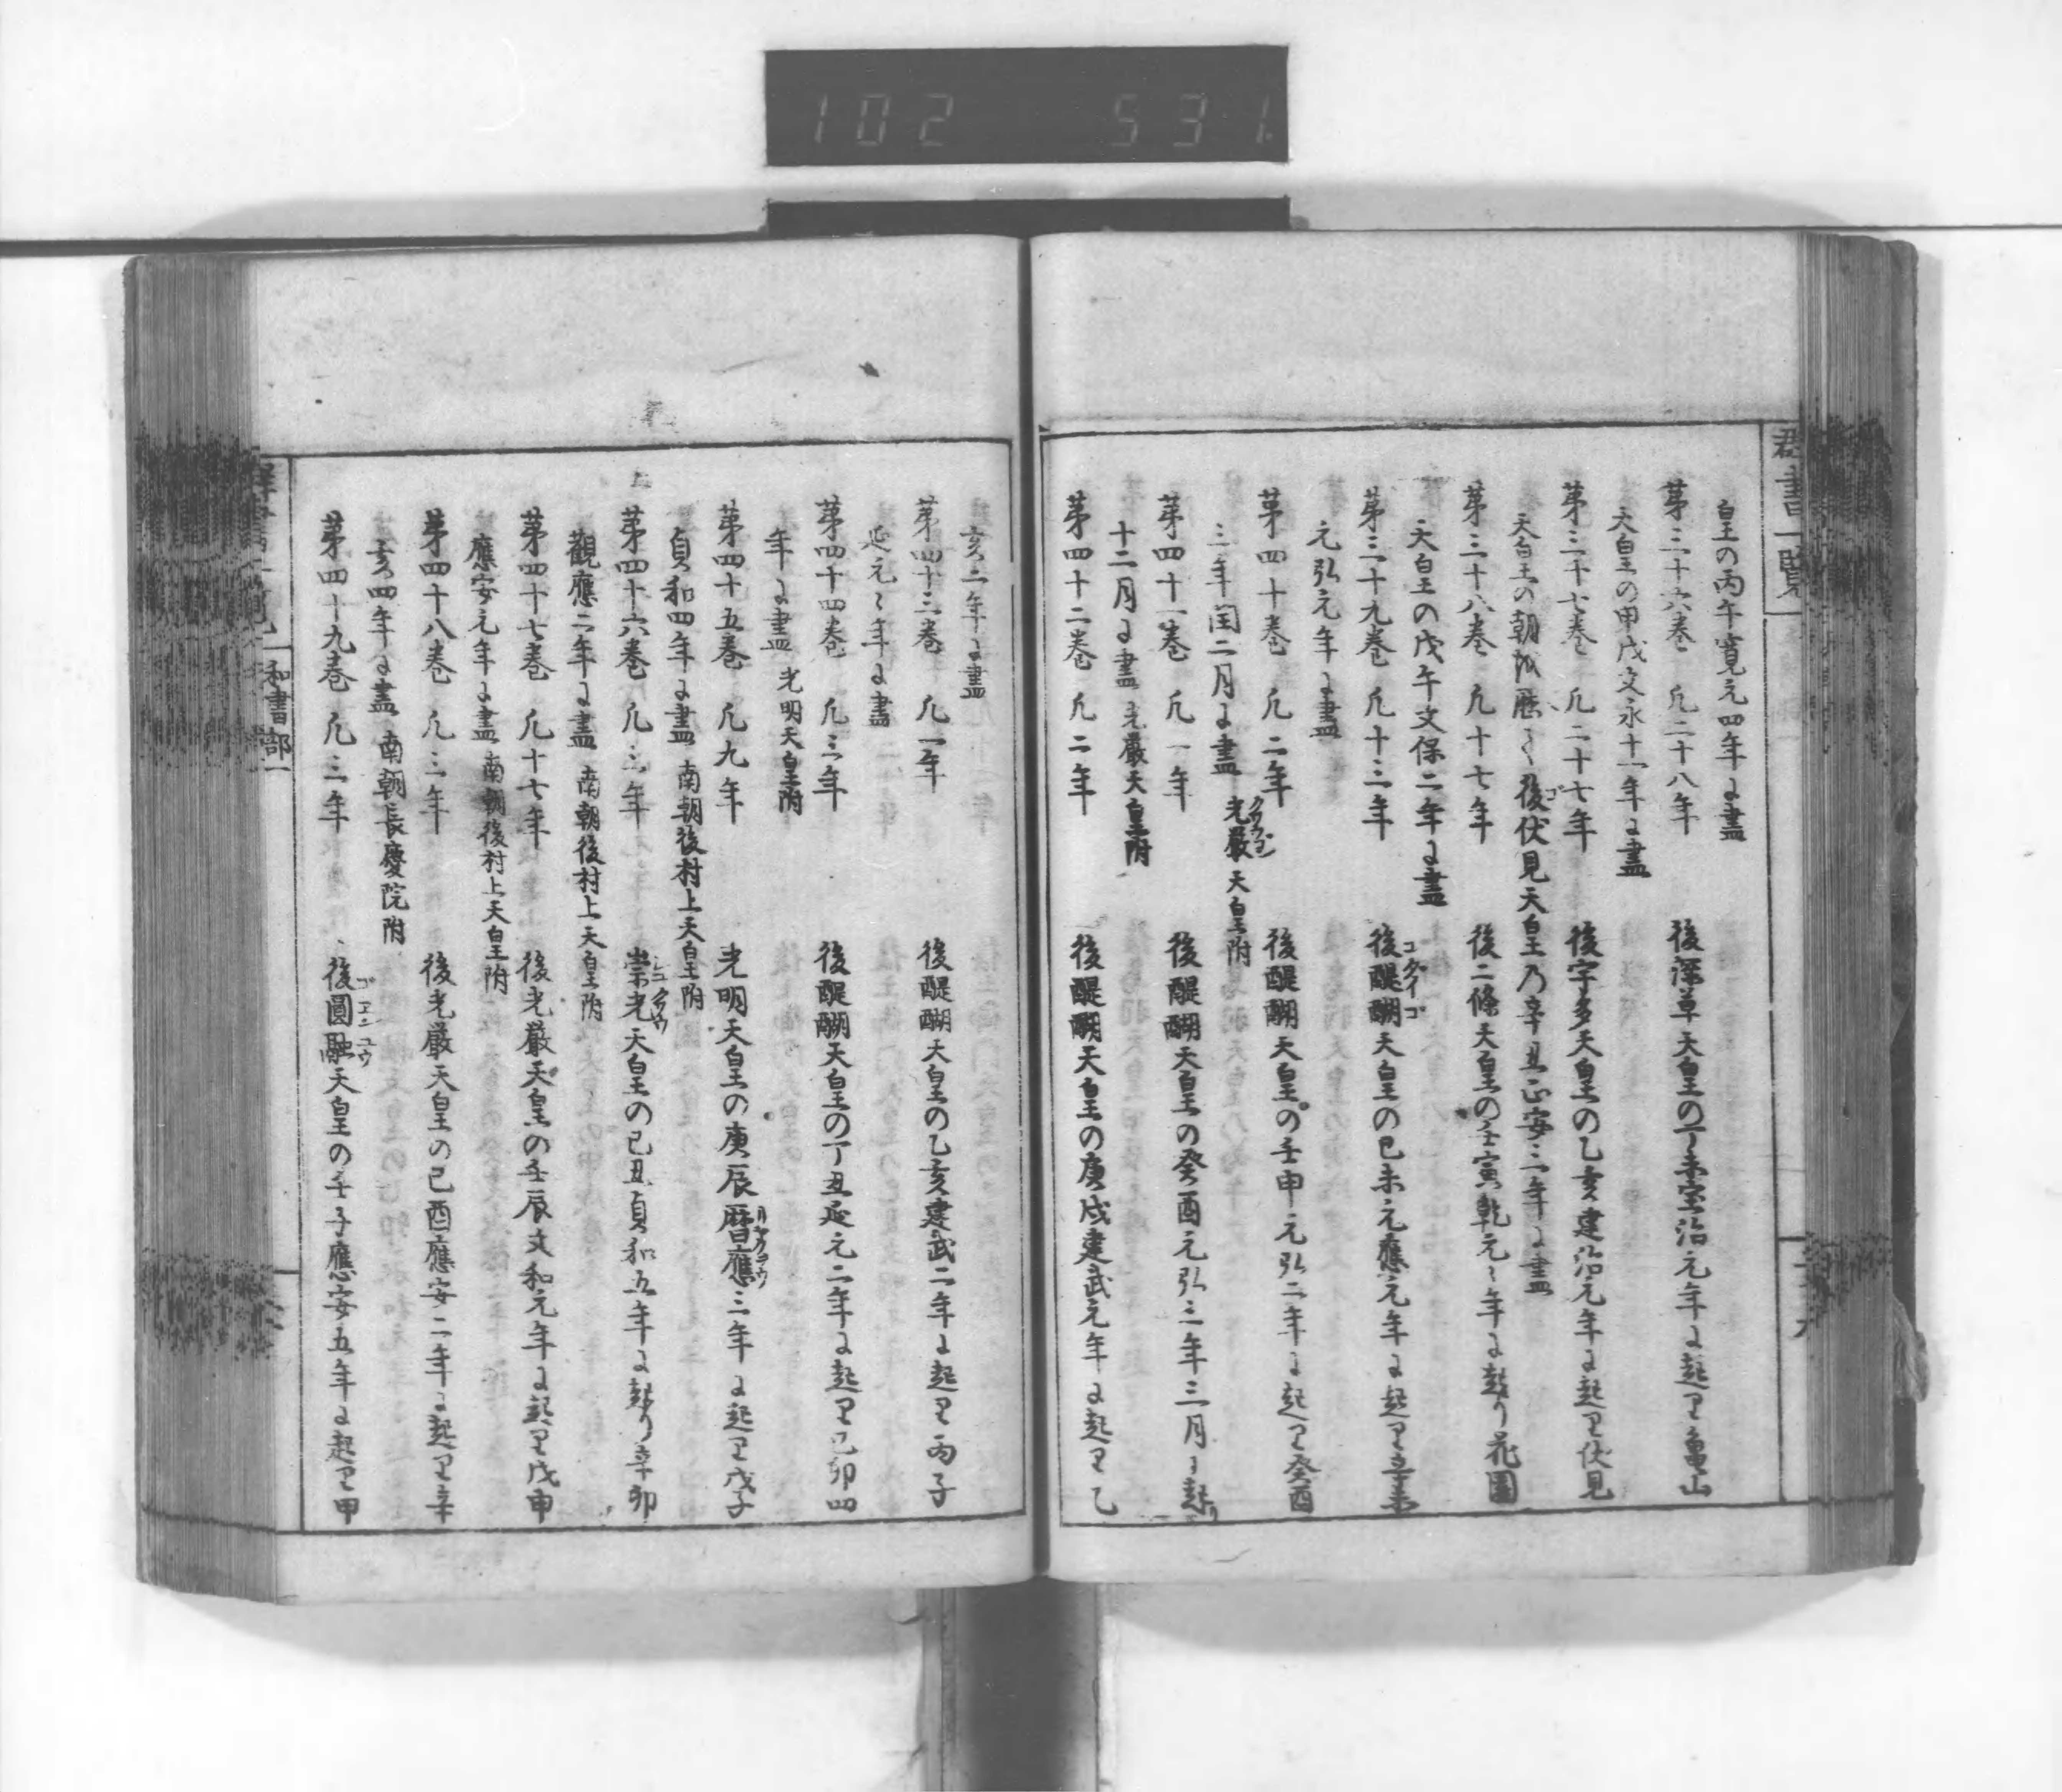 102 531
群書一覧
皇の丙午寛元四年に盡
第三十六巻 凡二十八年 後深草天皇の丁未宝治元年に起り亀山
天皇の甲戌文永十一年に盡
第三十七巻 凡二十七年 後宇多天皇の乙亥建治元年に起り伏見
天皇の朝を歴て後伏見天皇乃辛丑正安三年に盡
第三十八巻 凡十七年 後二條天皇の壬寅乾元〻年に起り花園
天皇の戊午文保二年に盡
第三十九巻 凡十三年 後醍醐天皇の己未元應元年に起り辛未
元弘元年に盡
第四十巻 凡二年 後醍醐天皇の壬申元弘二年に起り癸酉
三年閏二月に盡 光嚴天皇附
第四十一巻 凡一年 後醍醐天皇の癸酉元弘三年三月に起り
十二月に盡 光嚴天皇附
第四十二巻 凡二年 後醍醐天皇の庚戌建武元年に起り乙
亥二年に盡
第四十三巻 凡一年 後醍醐天皇の乙亥建武二年に起り丙子
延元〻年に盡
第四十四巻 凡三年 後醍醐天皇の丁丑延元二年に起り己卯四
年に盡 光明天皇附
第四十五巻 凡九年 光明天皇の庚辰暦應三年に起り戊子
貞和四年に盡 南朝後村上天皇附
第四十六巻 凡三年 崇光天皇の己丑貞和五年に起り辛卯
觀應二年に盡 南朝後村上天皇附
第四十七巻 凡十七年 後光嚴天皇の壬辰文和元年に起り戊申
應安元年に盡 南朝後村上天皇附
第四十八巻 凡三年 後光嚴天皇の己酉應安二年に起り辛
亥四年に盡 南朝長慶院附
第四十九巻 凡三年 後圓融天皇の壬子應安五年に起り甲
和書部一